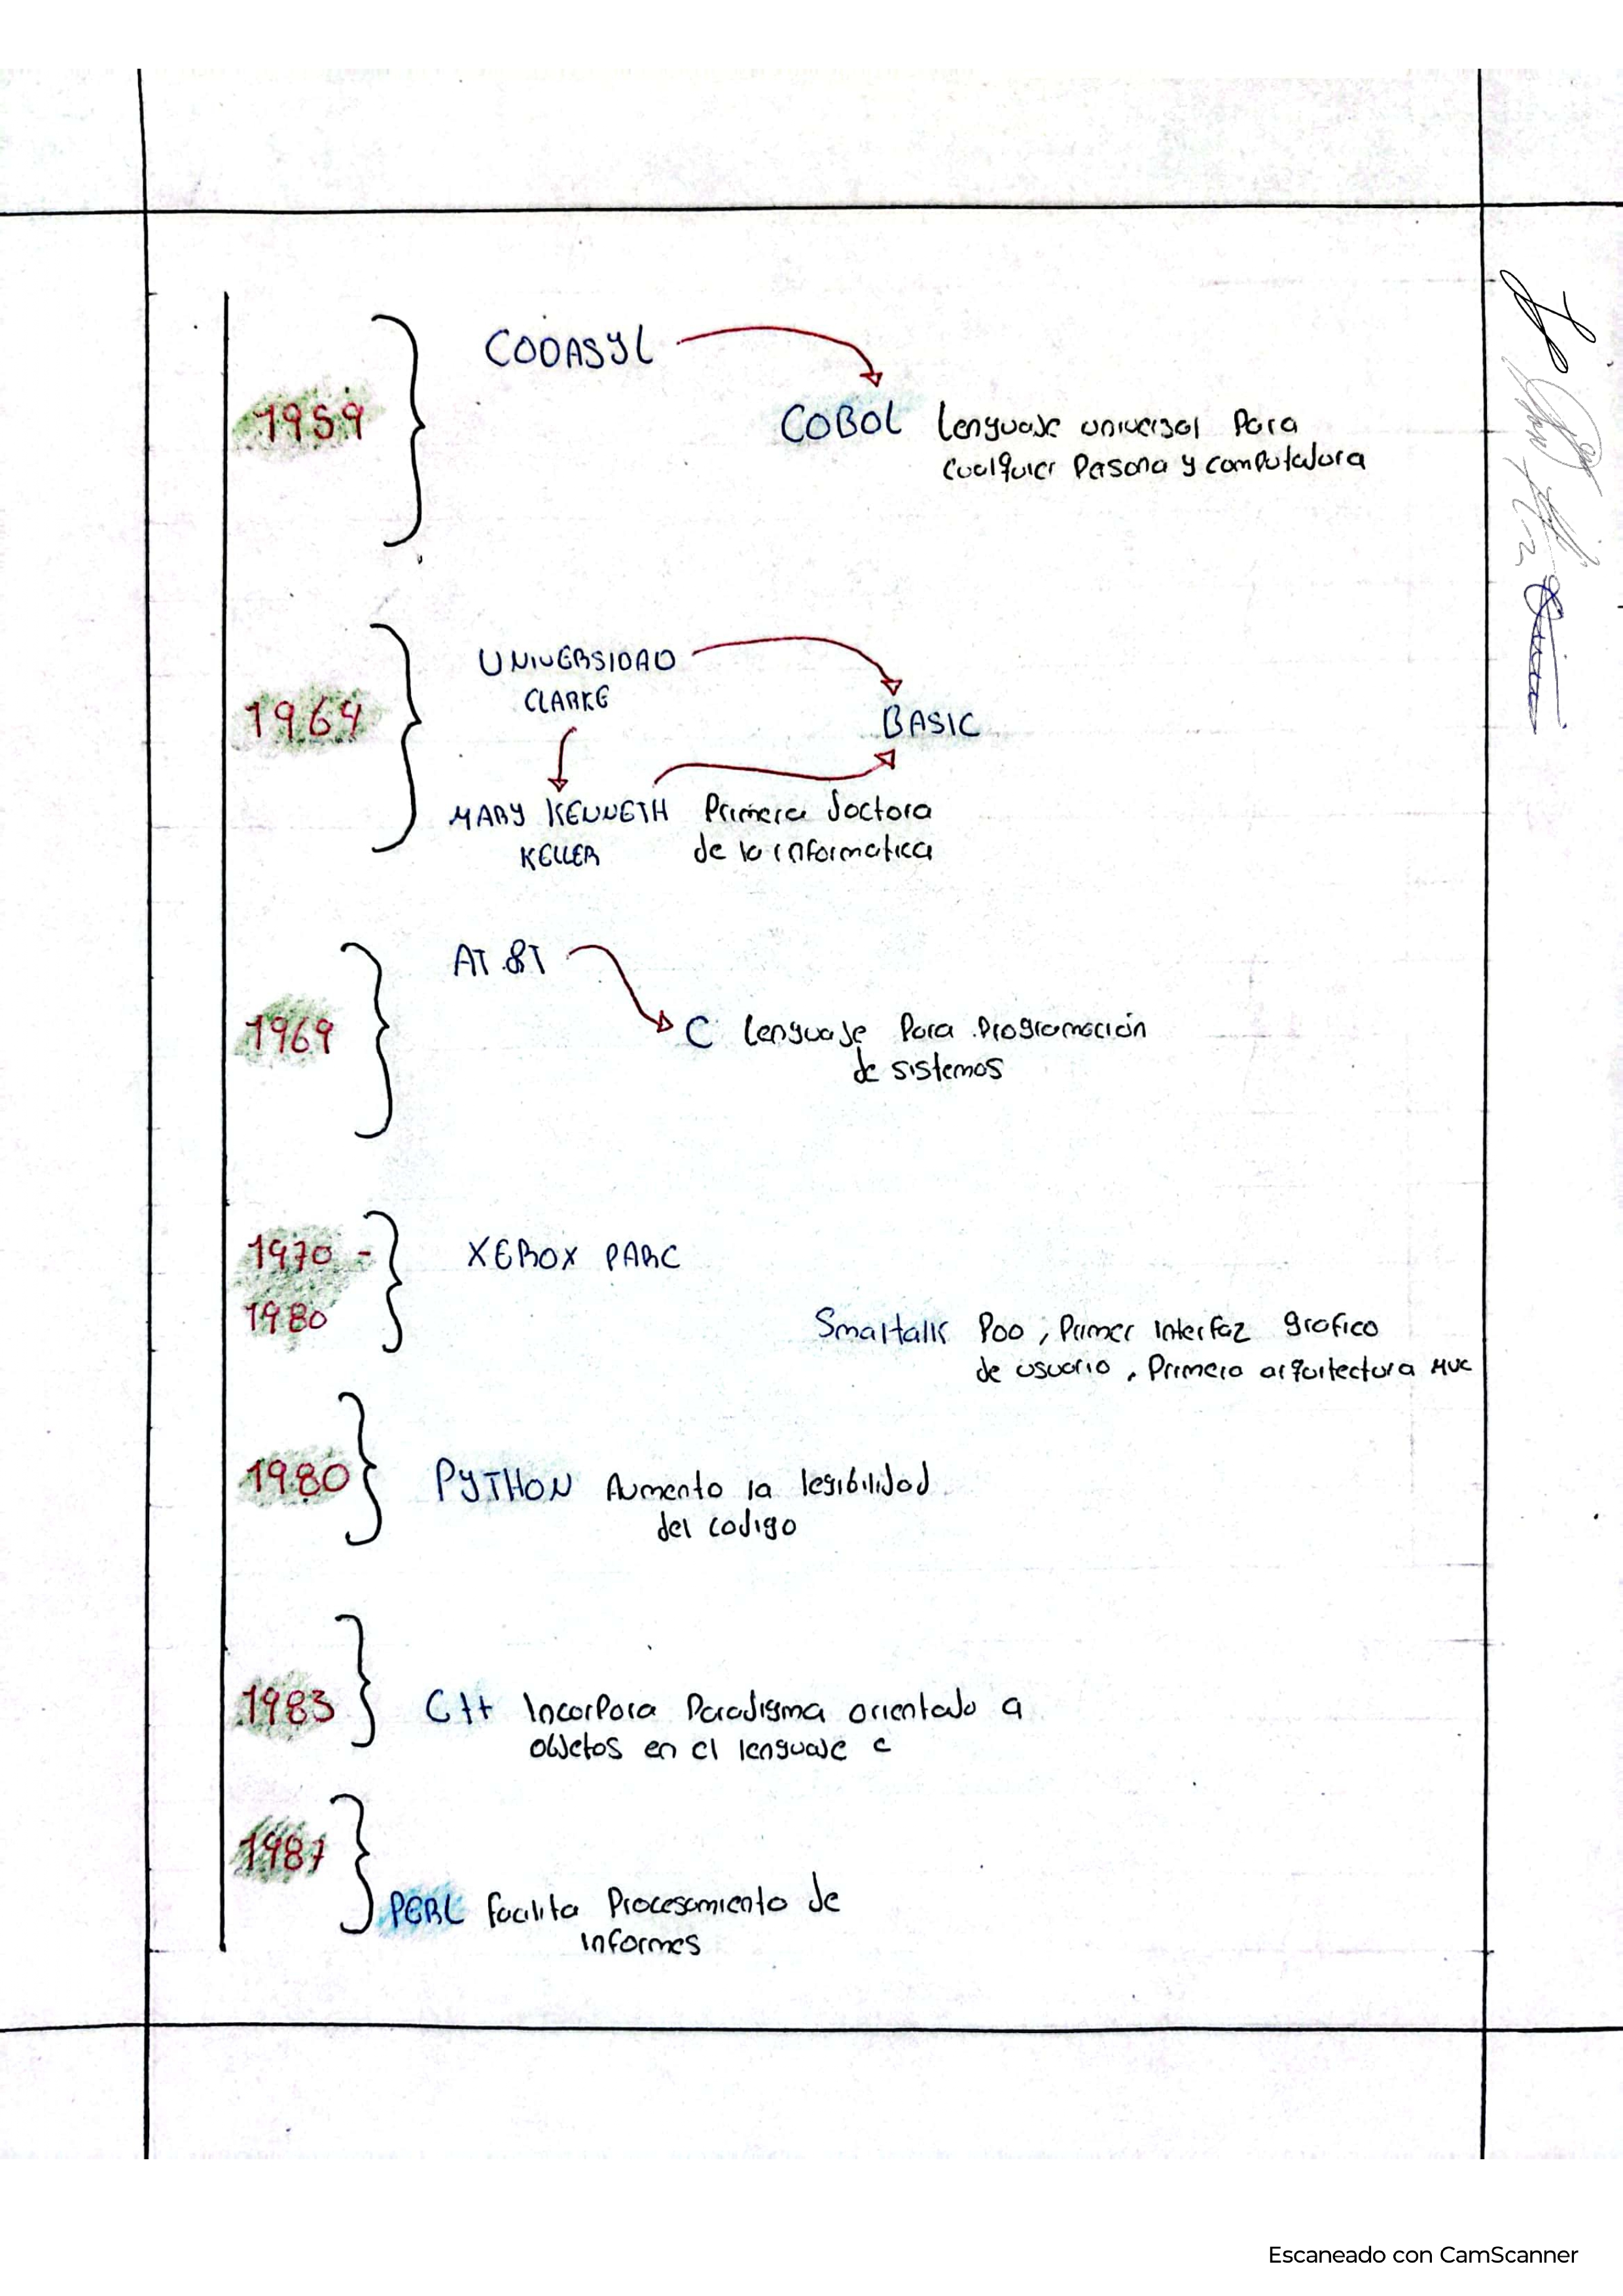 CODASYL
1959
COBOL Lenguaje universal Para
cualquier Pasona y computadora
UNIVERSIDAD
CLARKE
1964
BASIC
MARY KENNETH Primera doctora
KELLER de la informatica
AT&T
1969
C Lenguaje Para Programación
de sistemas
1970 -
XEROX PARC
1980
Smaltalk Poo, Primer Interfaz grafico
de usuario, Primera arquitectura MVC
1980
PYTHON Aumento la legibilidad
del codigo
1983
C++ Incorpora Paradigma orientado a
objetos en el lenguaje c
1987
PERL facilita Procesamiento de
informes
Escaneado con CamScanner